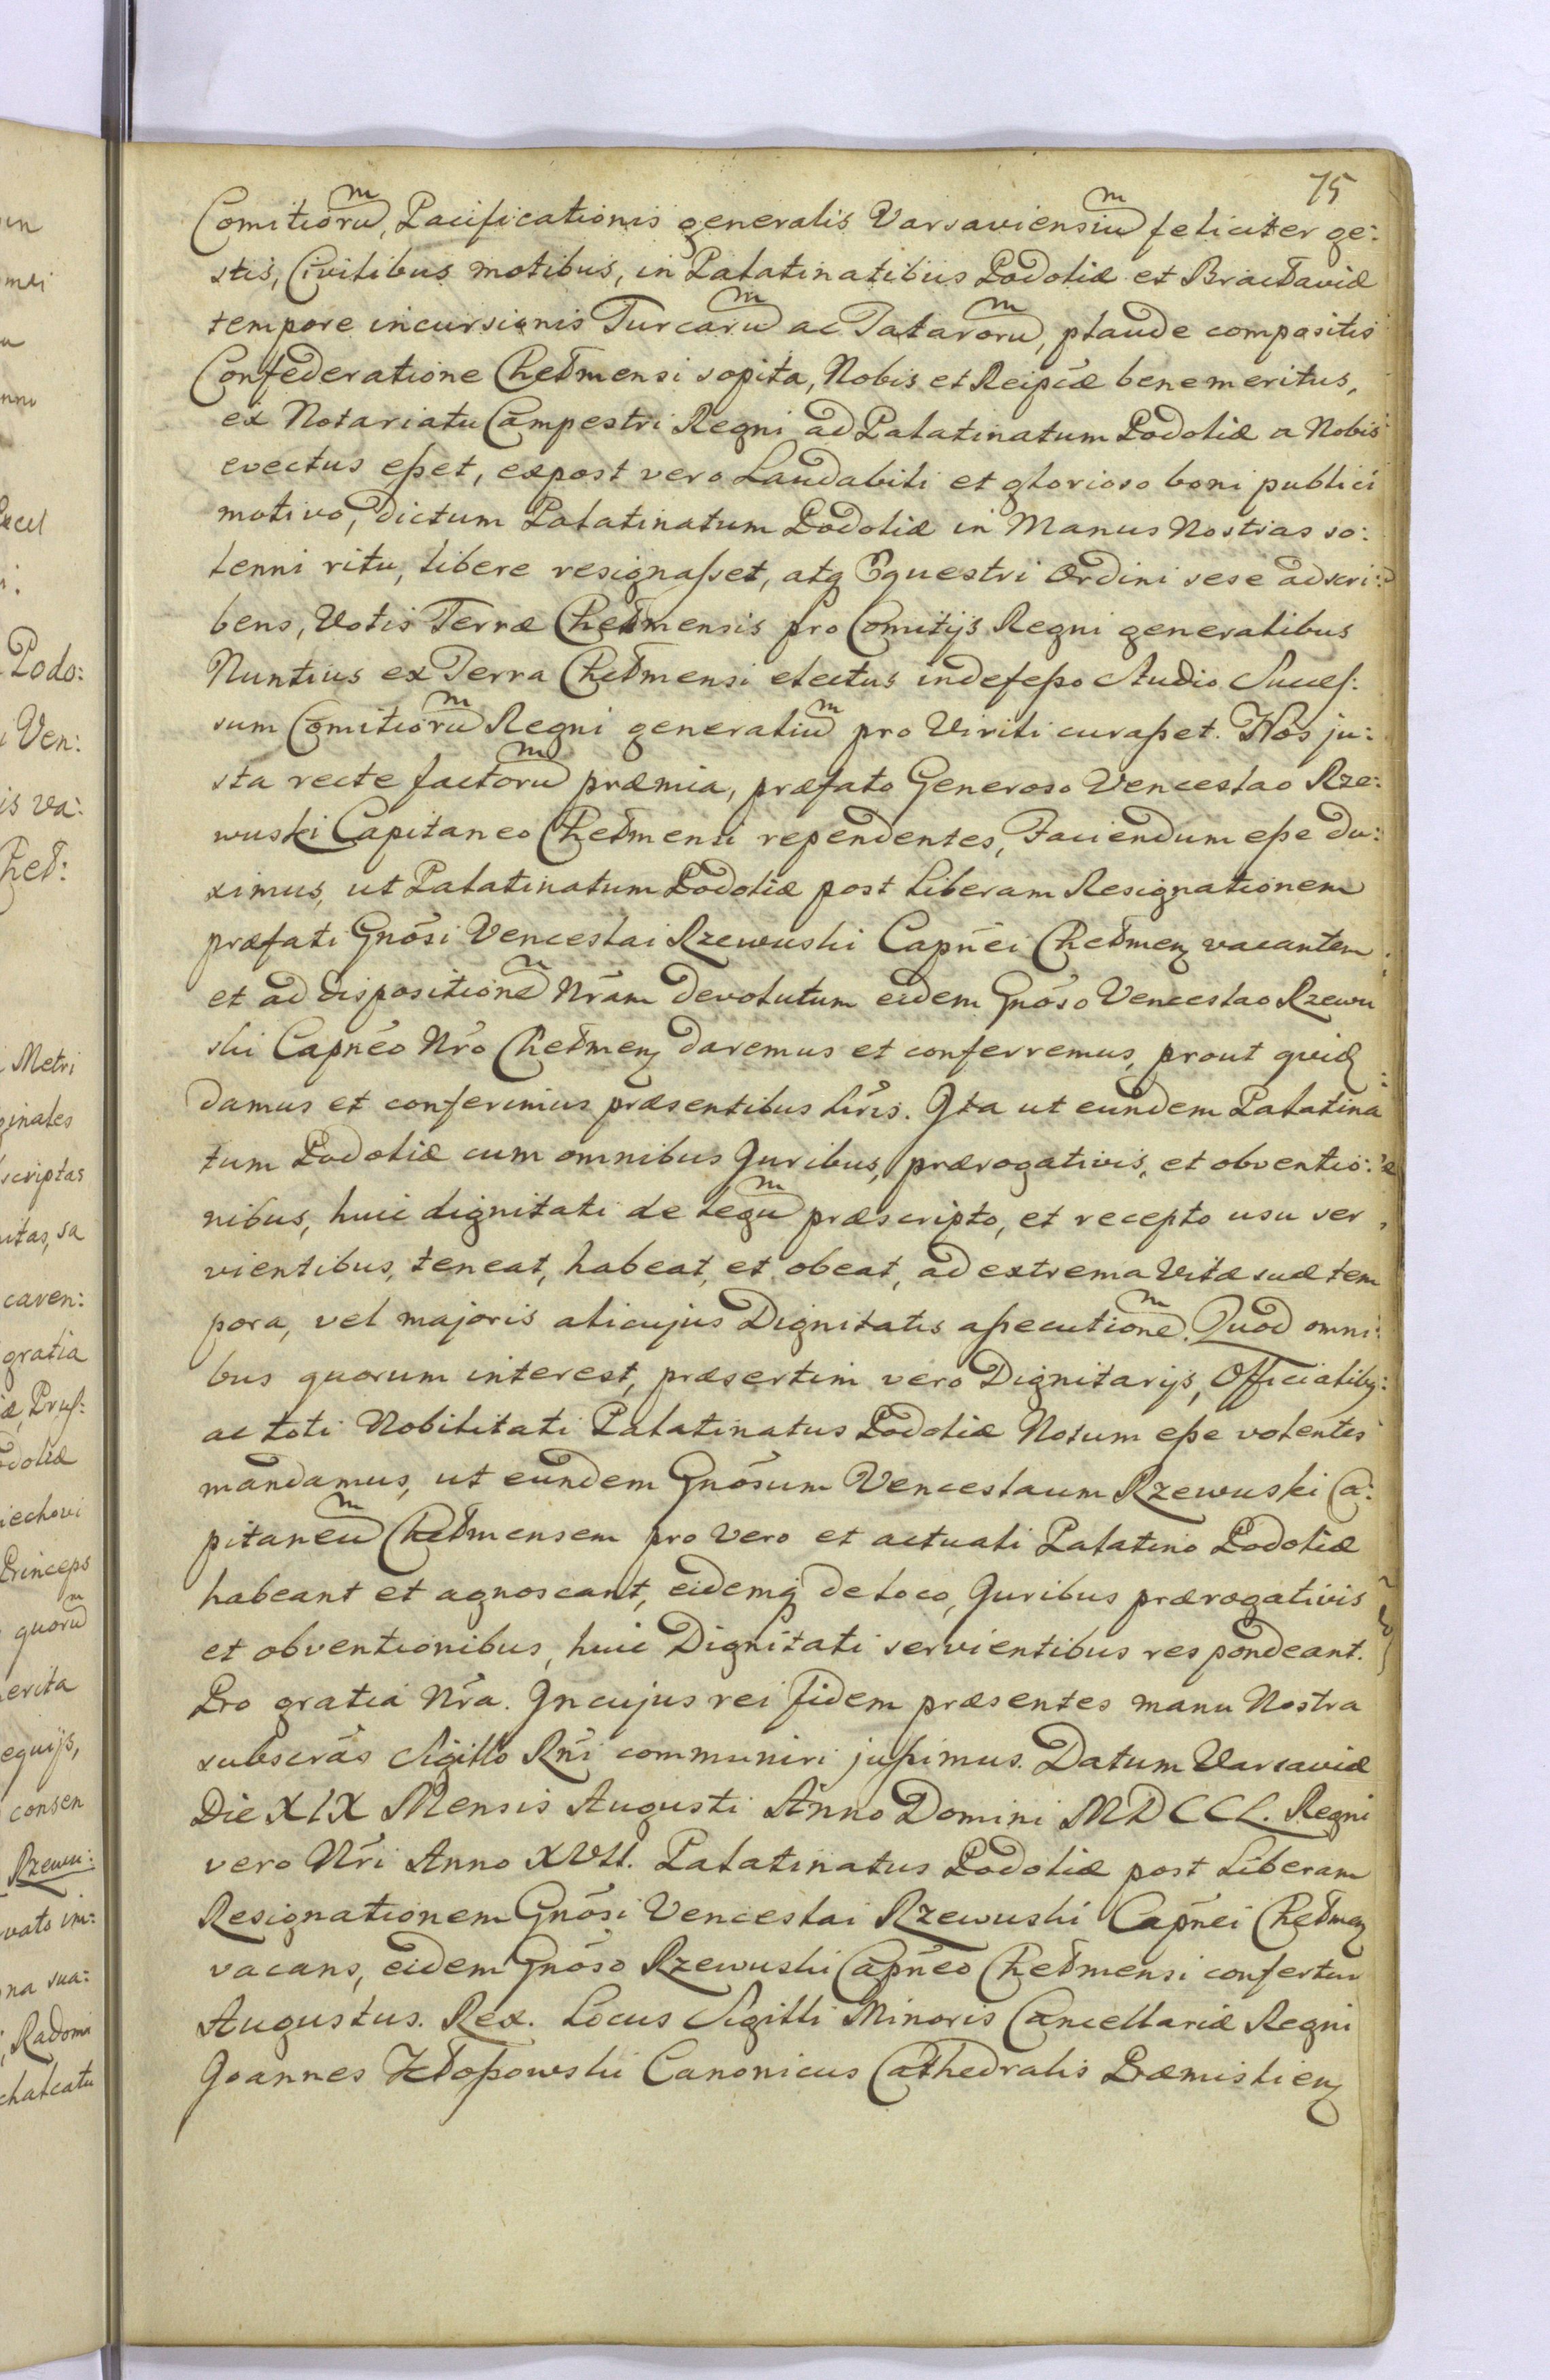 75
Comitiorũ, Pacificationis generalis Varsaviensiũ feliciter ge:
stis, Civilibus motibus, in Palatinatibus Podoliæ et Bracłaviæ
tempore incursionis Turcarũ ac Tatarorũ, plaude compositis
Confederatione Chełmensi sopita, Nobis et Reipćæ benemeritus,
ex Notariatu Campestri Regni ad Palatinatum Podoliæ a Nobis
evectus eſset, expost vero Laudabili et glorioso boni publici
motivo, dictum Palatinatum Podoliæ in Manus Nostras so:
lenni ritu, libere resignaſset, atq Equestri Ordini sese adscri:
bens, Votis Terræ Chełmensis pro Comitijs Regni generalibus
Nuntius ex Terra Chełmensi electus indefeſso studio Succeſ:
sum Comitiorũ Regni generaliũ pro Virili curaſset. Nos ju:
sta recte factorũ præmia, præfato Generoso Venceslao Rze:
wuski Capitaneo Chełmensi rependentes, Faciendum eſse du:
ximus, ut Palatinatum Podoliæ post liberam Resignationem
præfati Gnõsi Venceslai Rzewuski Capnéi Chełmeñ vacantem
et ad dispositionẽ Nrãm devolutum eidem Gnõso Venceslao Rzewu
ski Capnéo Nrõ Chełmeñ daremus et conferremus, prout quid
damus et conferimus præsentibus lirĩs. Ita ut eundem Palatina
tum Podoliæ cum omnibus Juribus, prærogativis, et obventio:
nibus, huic dignitati de legũ præscripto, et recepto usu ser
vientibus, teneat, habeat, et obeat, ad extrema Vitæ suæ tem
pora, vel majoris alicujus Dignitatis aſsecutionẽ. Quod omni:
bus quorum interest, præsertim vero Dignitarijs, Officialibq:
ac toti Nobilitati Palatinatus Podoliæ Notum eſse volentes
mandamus, ut eundem Gnõsum Venceslaum Rzewuski Ca:
pitaneũ Chełmensem pro Vero et actuali Palatino Podoliæ
habeant et agnoscant, eidemq́ de loco, Juribus prærogativis
et obventionibus, huic Dignitati servientibus respondeant.
Pro gratia Nrã. In cujus rei fidem præsentes manu Nostra
subscrãs Sigillo Rnĩ communiri juſsimus. Datum Varsaviæ
Die XIX Mensis Augusti Anno Domini MDCCL. Regni
vero Nrĩ Anno XVII. Palatinatus Podoliæ post Liberam
Resignationem Gnõsi Venceslai Rzewuski Capñei Chełmeñ
vacans, eidem Gnõso Rzewuski Capnéo Chełmensi confertur
Augustus. Rex. Locus Sigilli Minoris Cancellariæ Regni
Joannes Kłoſsowski Canonicus Cathedralis Præmislieñ